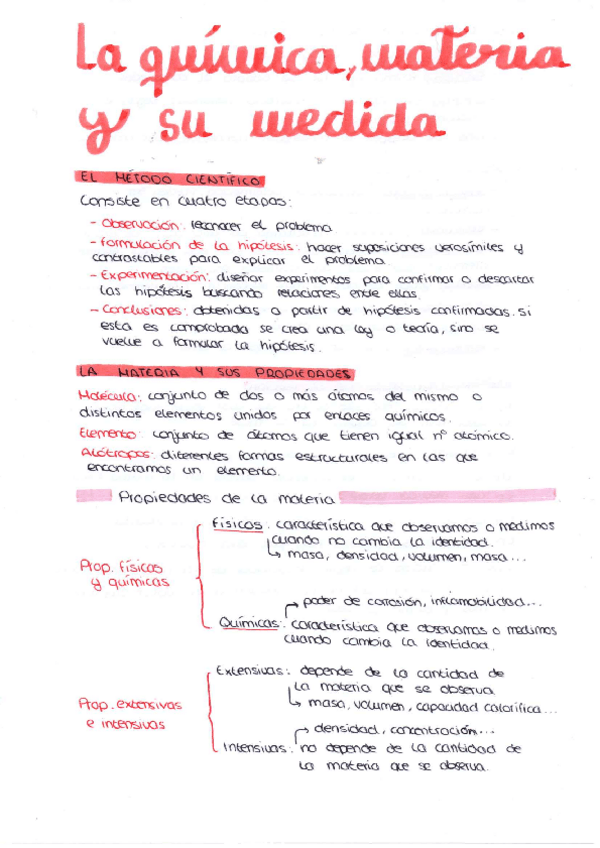 La química, materia
y su medida
EL MÉTODO CIENTÍFICO
Consiste en cuatro etapas:
- Observación: reconocer el problema
- Formulación de la hipótesis: hacer suposiciones verosímiles y
contrastables para explicar el problema.
- Experimentación: diseñar experimentos para confirmar o descartar
las hipótesis buscando relaciones entre ellas.
- Conclusiones: obtenidas a partir de hipótesis confirmadas. Si
esta es comprobada se crea una ley o teoría, sino se
vuelve a formular la hipótesis.
LA MATERIA Y SUS PROPIEDADES
Molécula: conjunto de dos o más átomos del mismo o
distintos elementos unidos por enlaces químicos.
Elemento: conjunto de átomos que tienen igual nº atómico.
Alótropos: diferentes formas estructurales en las que
encontramos un elemento.
Propiedades de la materia
Prop. físicas
y químicas
Físicos: característica que observamos o medimos
cuando no cambia la identidad.
↳ masa, densidad, volumen, masa...
poder de corrosión, inflamabilidad...
Químicas: característica que observamos o medimos
cuando cambia la identidad.
Prop. extensivas
e intensivas
Extensivas: depende de la cantidad de
la materia que se observa
↳ masa, volumen, capacidad calorífica...
densidad, concentración...
Intensivas: no depende de la cantidad de
la materia que se observa.